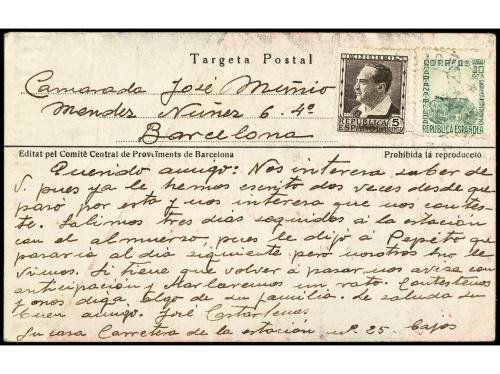 Targeta Postal
Camarada José Muñio
Mendez Nuñez 6. 4º
Barcelona
CORREOS
5
REPUBLICA
ESPAÑOLA
CORREOS
REPUBLICA ESPAÑOLA
Editat pel Comitè Central de Proveïments de Barcelona
Prohibida la reproducció
Querido amigo: Nos interesa saber de
V. pues ya le hemos escrito dos veces desde que
pasó por esta y nos interesa que nos contes-
te. Salimos tres dias seguidos a la estación
con el almuerzo, pues le dijó a Pepito que
pasaria al dia siguiente pero nosotros no le
vimos. Si tiene que volver á pasar nos avisa con
anticipación y hablaremos un rato. Contestenos
y nos diga algo de su familia. Le saluda su
buen amigo. José
Su casa Carretera de la estación nº 25